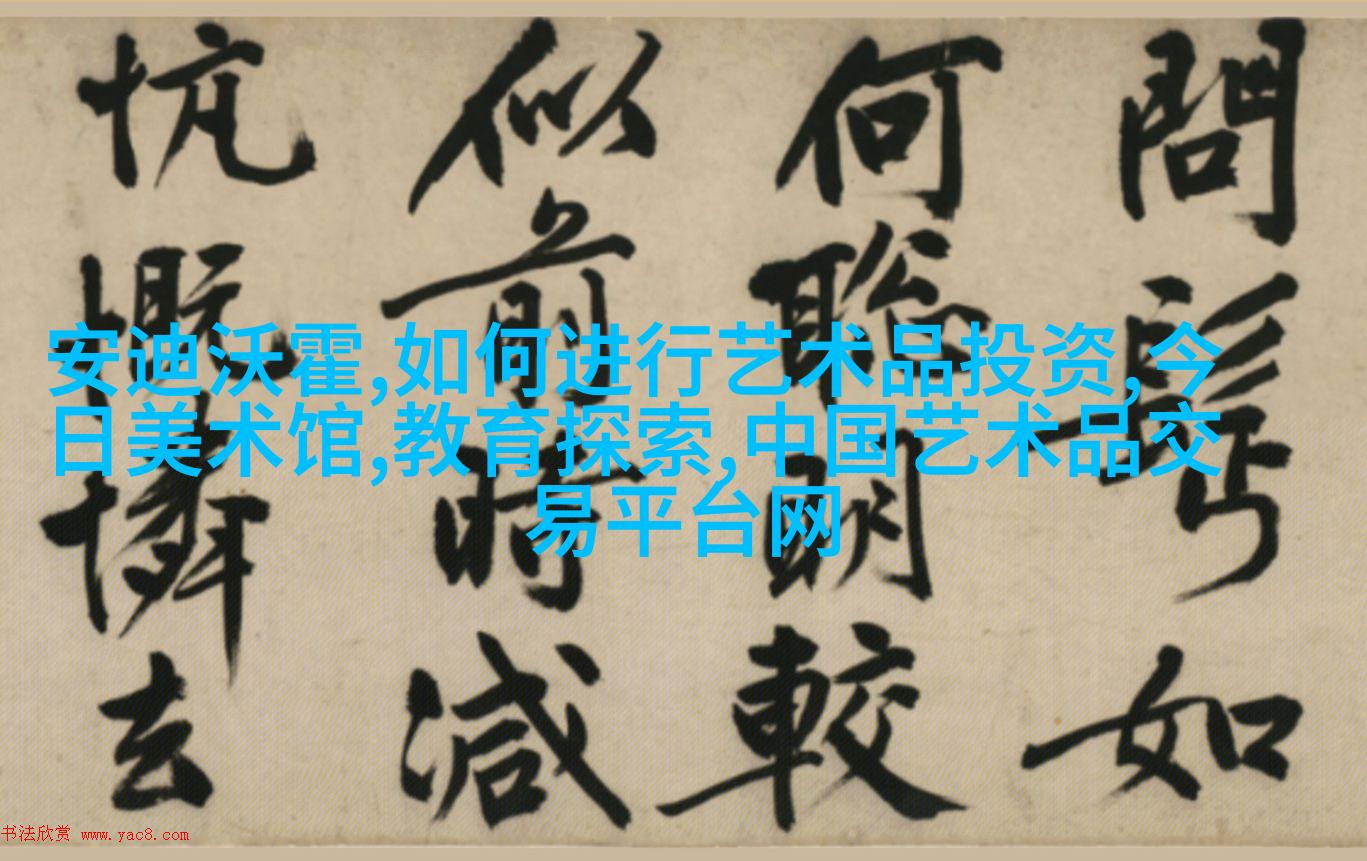 問如
何聰明較
似前時減
忼慨憐去
安迪沃霍,如何进行艺术品投资,今
日美术馆,教育探索,中国艺术品交
易平台网
书法欣赏 www.yac8.com